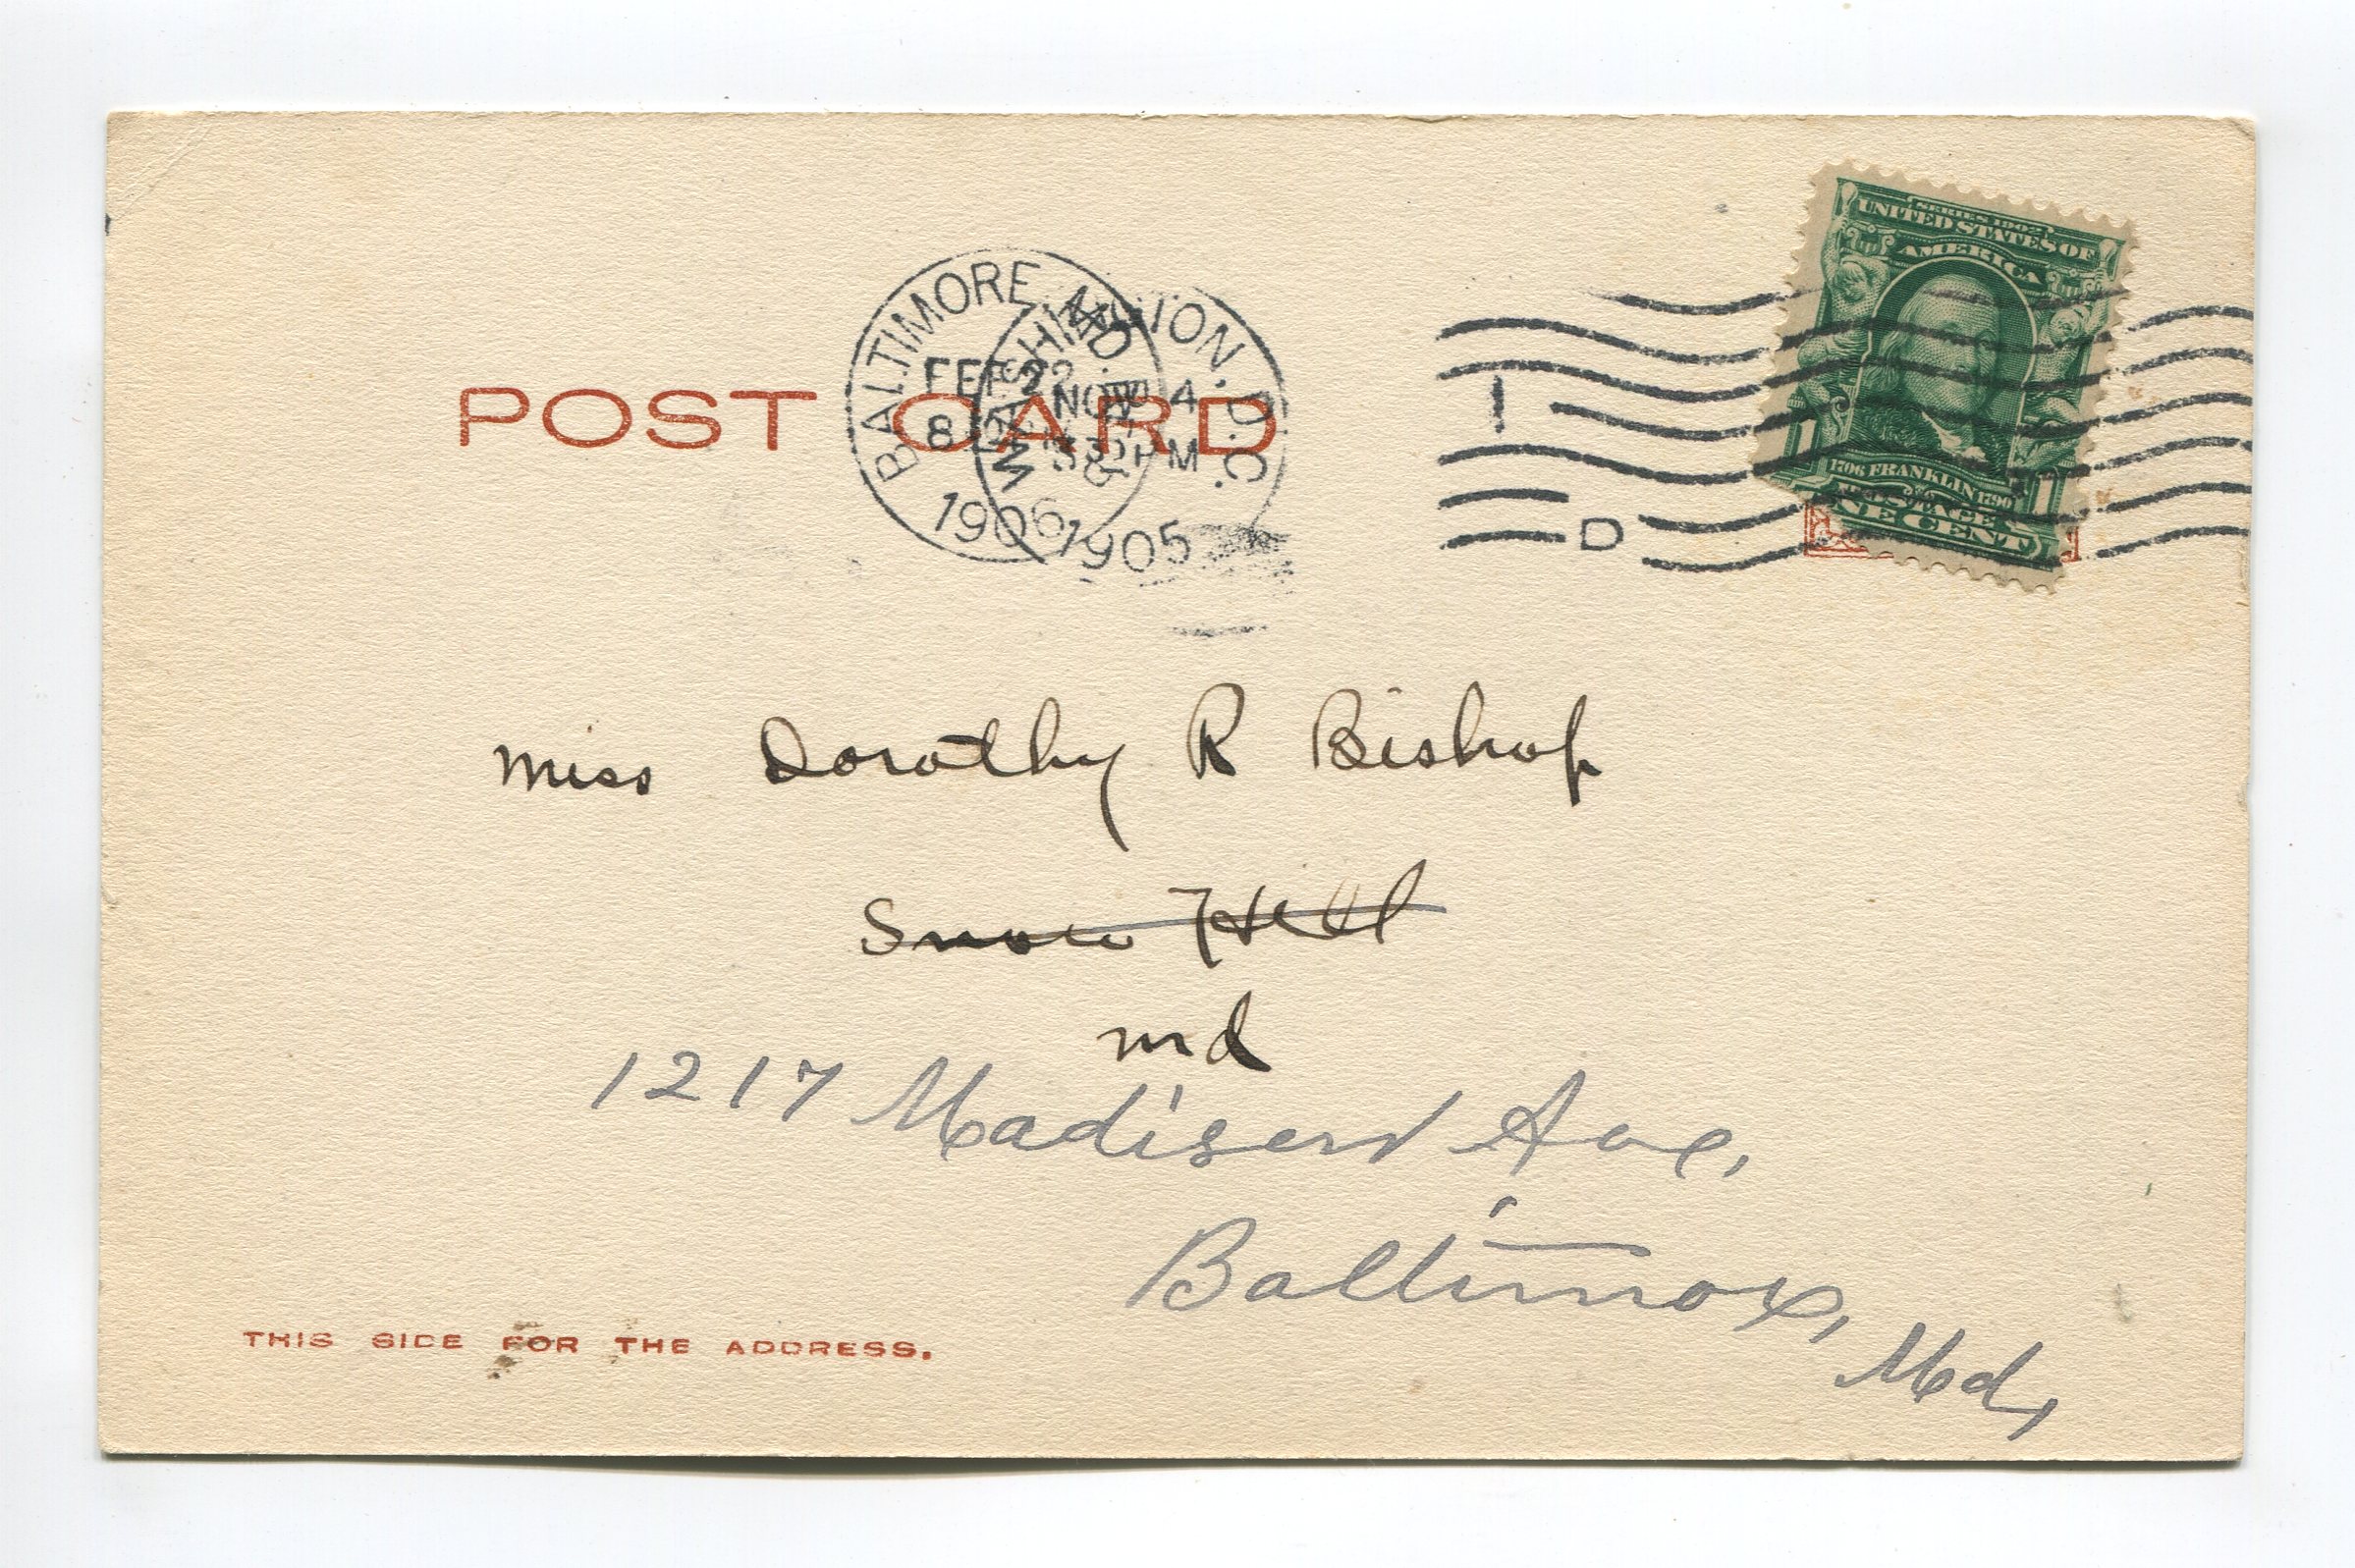 SERIES 1902
UNITED STATES OF
AMERICA
1706 FRANKLIN 1790
ONE CENT
BALTIMORE, MD.
FEB 22
8
1906
WASHINGTON, D.C.
NOV 4
332PM
1905
1
D
POST CARD
Miss Dorothy R Bishop
Snow Hill
Md
1217 Madison Ave,
Baltimore, Md,
THIS SIDE FOR THE ADDRESS.